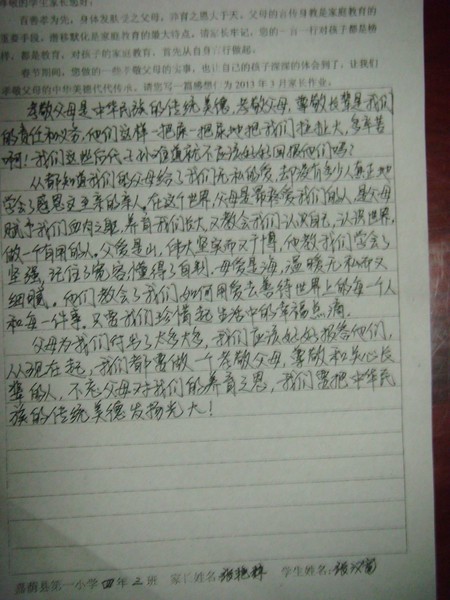 尊敬的学生家长您好:
百善孝为先,身体发肤受之父母,养育之恩大于天。父母的言传身教是家庭教育的
重要手段。潜移默化是家庭教育的最大特点。请家长牢记,您的一言一行对孩子都是榜
样,都是教育,对孩子的家庭教育,首先从自身言行做起。
春节期间,您做的一些孝敬父母的实事,也让自己的孩子深深的体会到了,让我们
孝敬父母的中华美德代代传承。请您写一篇感想(为2013年3月家长作业。
孝敬父母是中华民族的传统美德,孝敬父母,尊敬长辈是我们
的责任和义务,他们这样一把屎一把尿地把我们拉扯大,多辛苦
啊!我们这些后代子孙难道就不应该好好回报他们吗?
从都知道我们的父母给了我们无私的爱,却没有多少人真正地
学会了感恩父母的亲人。在这个世界,父母是最疼爱我们的人,是父母
赋予我们血肉之躯,养育我们长大,又教会我们认识自己,认识世界,
做一个有用的人。父爱是山,伟大坚实而又宽博,他教我们学会了
坚强,记住了宽容懂得了自制,母爱是海,温暖无私而又
细腻。他们教会了我们如何用爱去善待世界上的每一个人
和每一件事。又需我们珍惜起生活中的幸福点滴。
父母为我们付出了太多太多,我们应该好好报答他们,
从现在起,我们都需做一个孝敬父母,尊敬和关心长
辈的人,不忘父母对我们的养育之恩,我们要把中华民
族的传统美德发扬光大!
嘉荫县第一小学四年三班 家长姓名:张艳 学生姓名:张汉